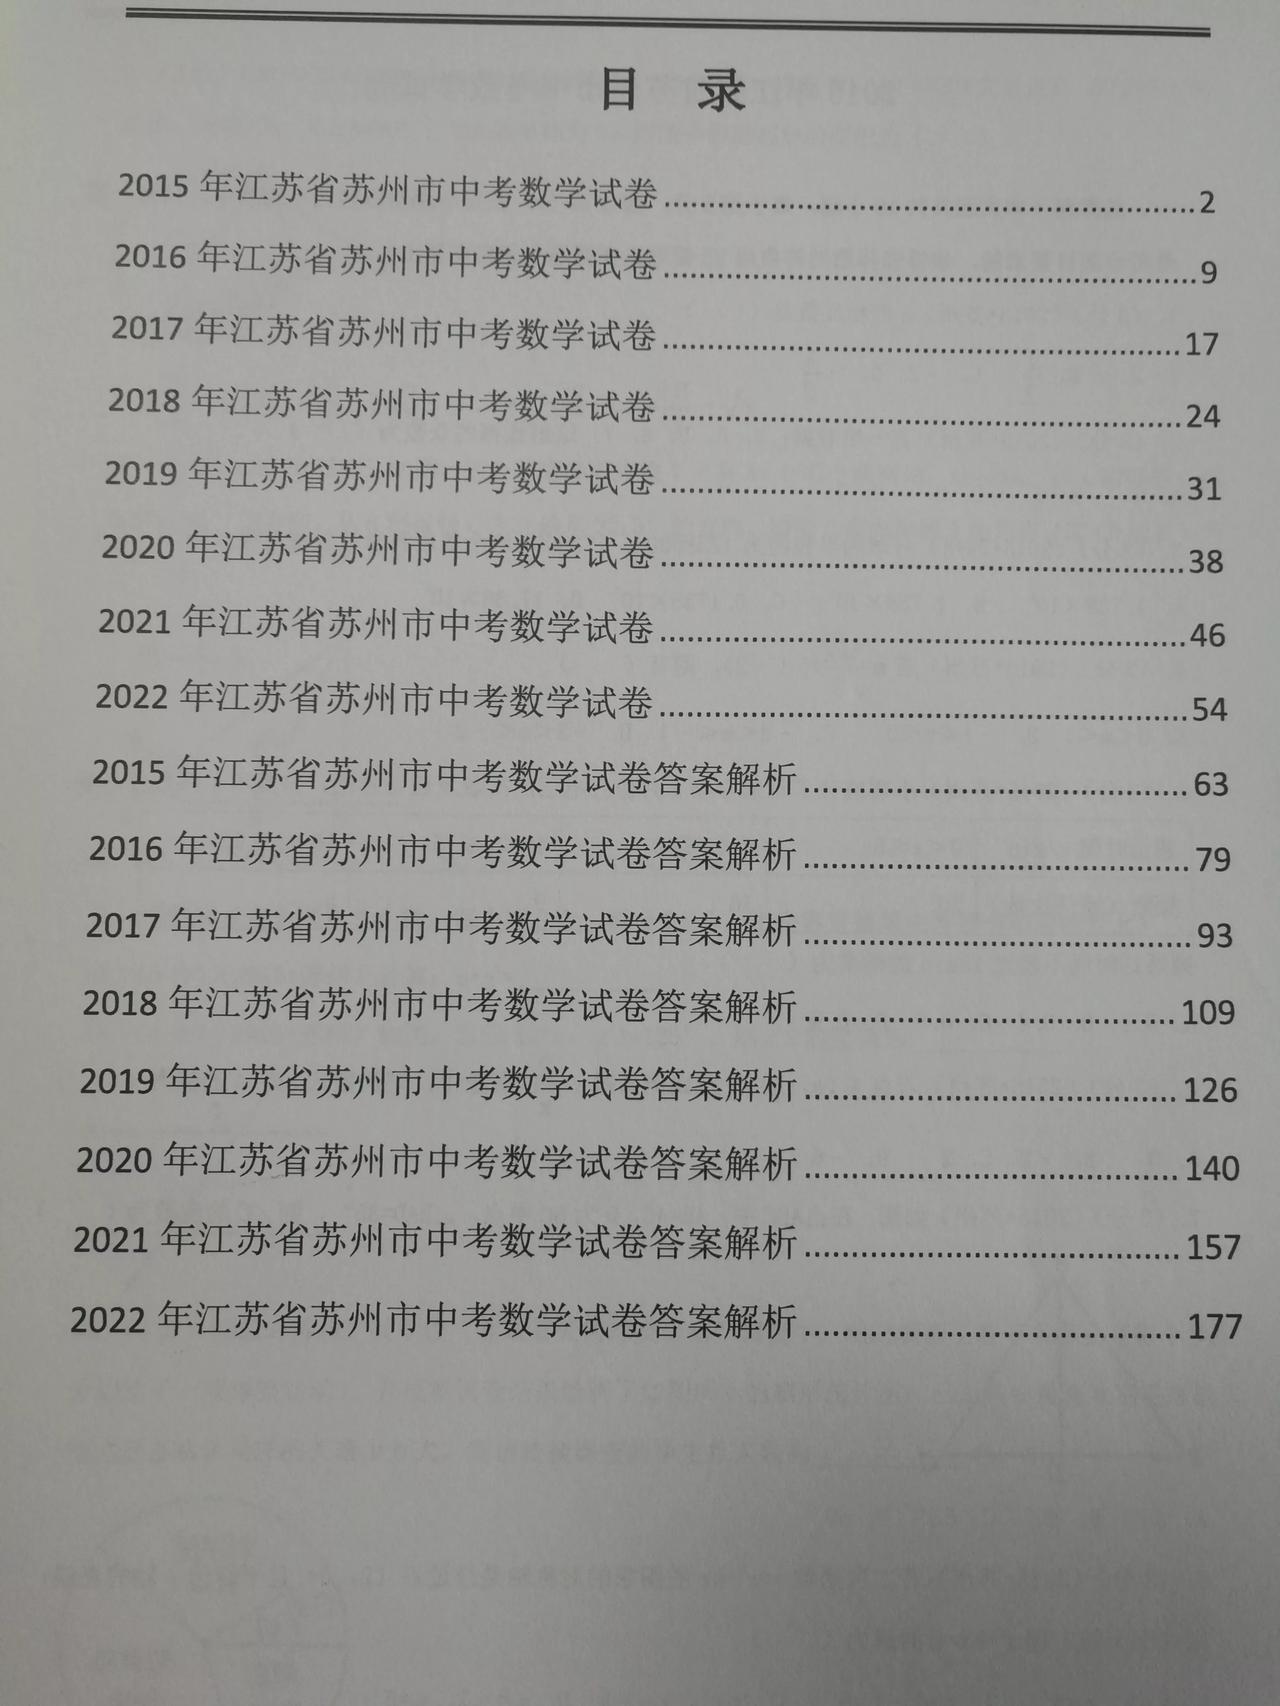 目 录
2015 年江苏省苏州市中考数学试卷........................................................2
2016 年江苏省苏州市中考数学试卷........................................................9
2017 年江苏省苏州市中考数学试卷........................................................17
2018 年江苏省苏州市中考数学试卷........................................................24
2019 年江苏省苏州市中考数学试卷........................................................31
2020 年江苏省苏州市中考数学试卷........................................................38
2021 年江苏省苏州市中考数学试卷........................................................46
2022 年江苏省苏州市中考数学试卷........................................................54
2015 年江苏省苏州市中考数学试卷答案解析........................................63
2016 年江苏省苏州市中考数学试卷答案解析........................................79
2017 年江苏省苏州市中考数学试卷答案解析........................................93
2018 年江苏省苏州市中考数学试卷答案解析........................................109
2019 年江苏省苏州市中考数学试卷答案解析........................................126
2020 年江苏省苏州市中考数学试卷答案解析........................................140
2021 年江苏省苏州市中考数学试卷答案解析........................................157
2022 年江苏省苏州市中考数学试卷答案解析........................................177